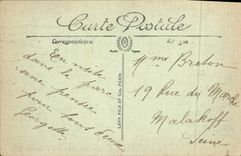 Carte Postale
Correspondance
En visite
dans le parc
une pensée
pour tous deux
Georgette
LEVY FILS ET Cie, PARIS
Mme Breton
19 Rue du Marché
Malakoff
Seine